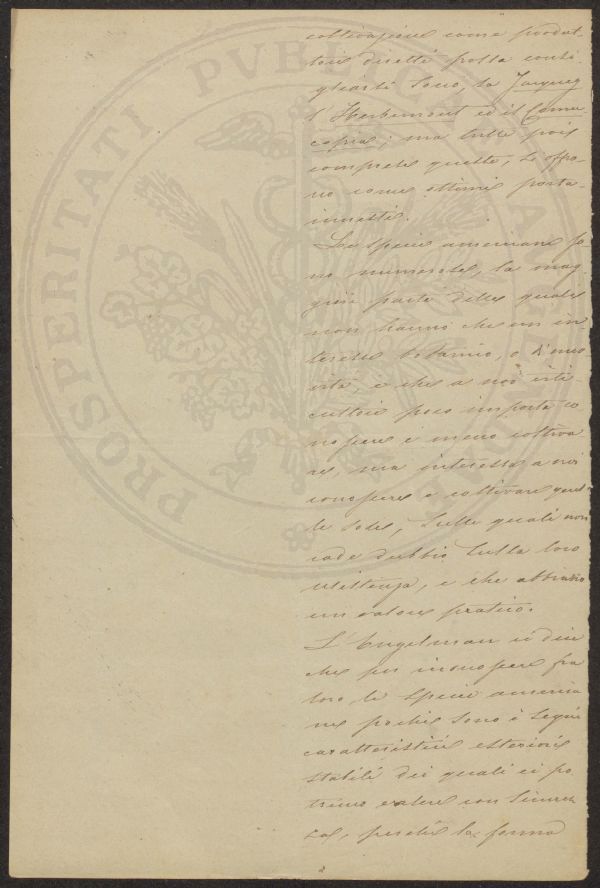 coltivazione come produt-
tori diretti possa consi-
gliarsi sono, la Jacquez
l'Herbemont ed il Cornu
copia; ma tutte pois
comprese queste, si offro
no come ottimi porta-
innesti.
Le specie americane so-
no numerose, la mag-
gior parte delle quali
non hanno che un in-
teresse botanico, o d'
e che a noi viti-
cultori poco importa co
noscere e meno coltiva
re, ma interessa a noi
conoscere e coltivare quel
le sole, sulle quali non
cade dubbio sulla loro
resistenza, e che abbiano
un valore pratico.
L'Engelman ci dice
che per riconoscere fra
loro, le specie america
ne pochi sono i segni
caratteristici esteriori
stabili dei quali ci po
tremo valere con sicurez
za, perchè la forma
PROSPERITATI PVBLICAE AVGENDAE